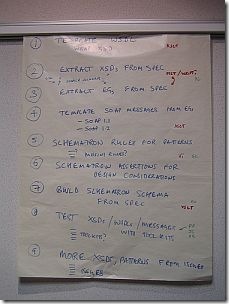 1 TEMPLATE WSDL
WHAT XSD? XSLT
2 EXTRACT XSDs FROM SPEC
3 EXTRACT EGs FROM SPEC
4 TEMPLATE SOAP MESSAGES FROM EGs
- SOAP 1.1
- SOAP 1.2 XSLT
5 SCHEMATRON RULES FOR PATTERNS
6 SCHEMATRON ASSERTIONS FOR
DESIGN CONSIDERATIONS
7 BUILD SCHEMATRON SCHEMA
FROM SPEC
XSLT
8 TEST XSDs/WSDLs/MESSAGES
WITH TOOLKITS
TOOLKITS?
9 MORE XSDs/PATTERNS FROM ISSUES
ISSUES